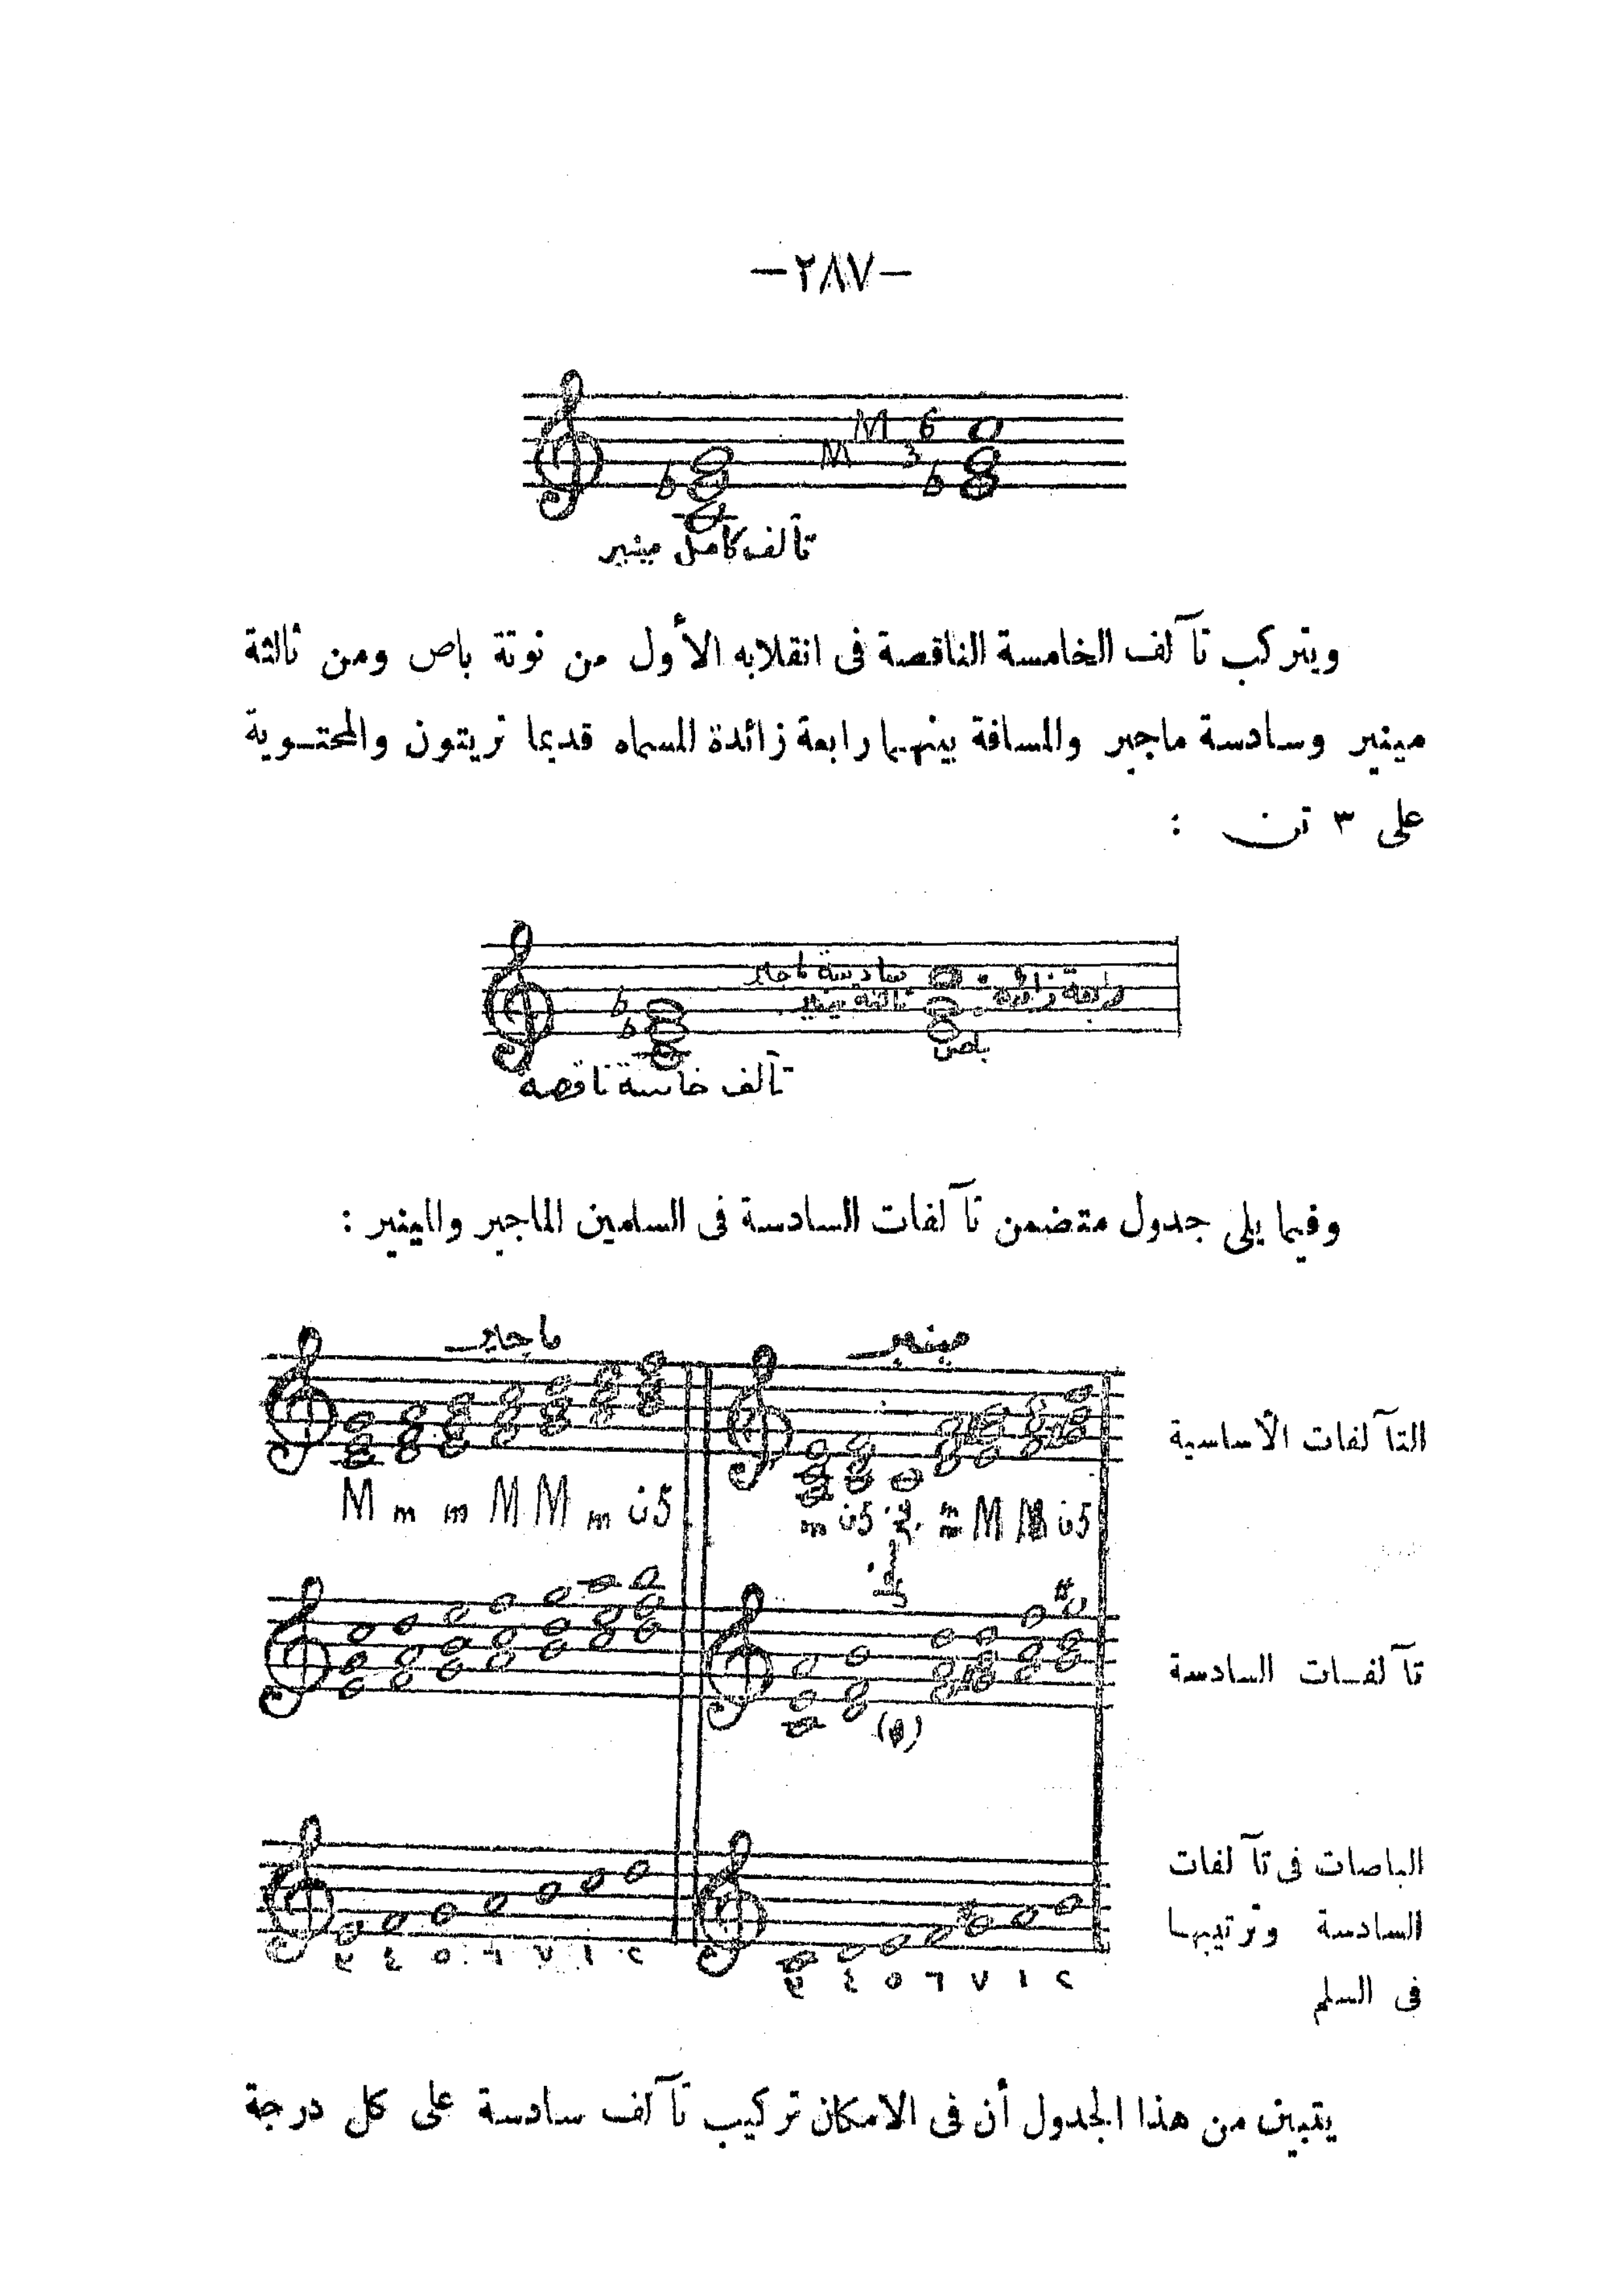 —٢٨٧—
M 6
M 3
b b
تآلف كامل مينير
ويتركب تآلف الخامسة الناقصة فى انقلابه الأول من نوتة باص ومن ثالثة
مينير وسادسة ماجير والمسافة بينهما رابعة زائدة المسماه قديما تريتون والمحتوية
على ٣ تن :
سادسة ماجير
ثالثة مينير رابعة زائدة
b
b
باص
تآلف خامسة ناقصة
وفيما يلى جدول متضمن تآلفات السادسة فى السلمين الماجير والمينير :
ماجير مينير
التآلفات الأساسية
M m m M M m ن5 m ن5 M M ن5
تآلفات السادسة
الباصات فى تآلفات
السادسة وترتيبها
فى السلم
٣ ٤ ٥ ٦ ٧ ١ ٢ ٣ ٤ ٥ ٦ ٧ ١ ٢
يتبين من هذا الجدول أن فى الامكان تركيب تآلف سادسة على كل درجة